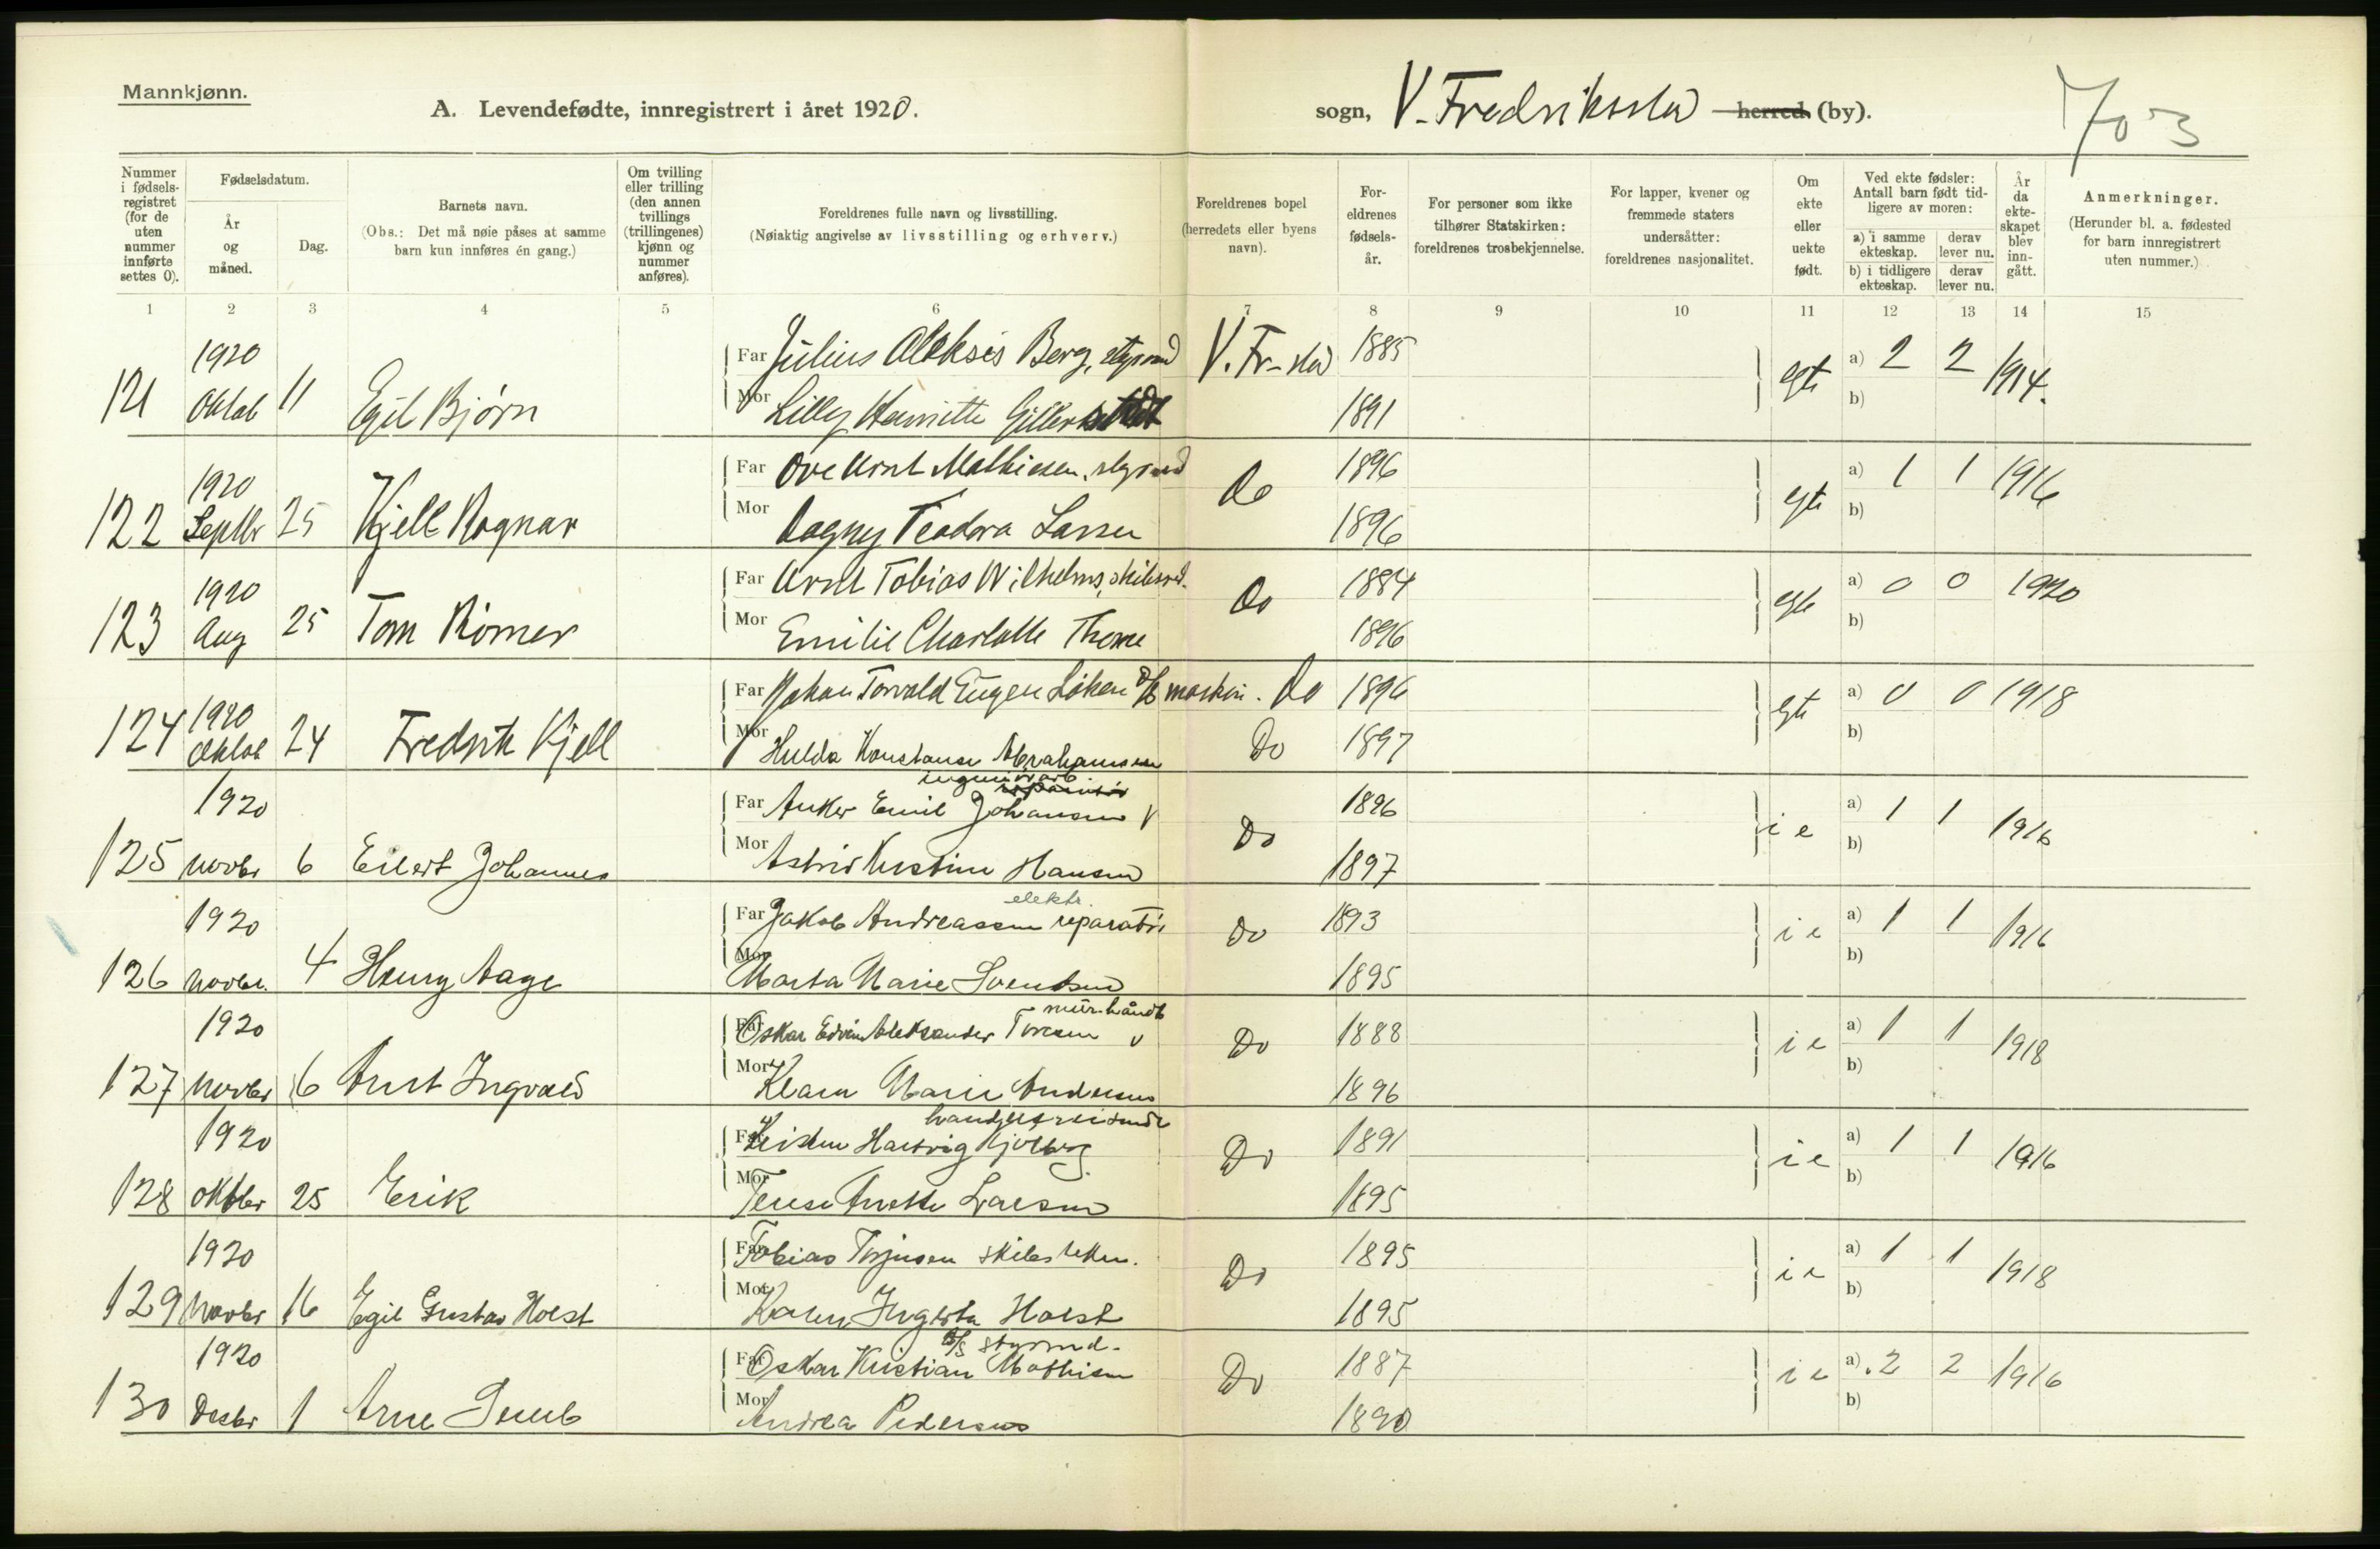 Mannkjønn.
A. Levendefødte, innregistrert i året 1920.
sogn, V. Fredriksstad herred (by).
703
Nummer i fødselsregistret (for de uten nummer innførte settes 0).
Fødselsdatum.
År og måned.
Dag.
Barnets navn.
(Obs.: Det må nøie påses at samme barn kun innføres én gang.)
Om tvilling eller trilling (den annen tvillings (trillingenes) kjønn og nummer anføres).
Foreldrenes fulle navn og livsstilling.
(Nøiaktig angivelse av livsstilling og erhverv.)
Foreldrenes bopel (herredets eller byens navn).
Foreldrenes fødselsår.
For personer som ikke tilhører Statskirken: foreldrenes trosbekjennelse.
For lapper, kvener og fremmede staters undersåtter: foreldrenes nasjonalitet.
Om ekte eller uekte født.
Ved ekte fødsler: Antall barn født tidligere av moren:
a) i samme ekteskap. derav lever nu.
b) i tidligere ekteskap. derav lever nu.
År da ekteskapet blev inngått.
Anmerkninger.
(Herunder bl. a. fødested for barn innregistrert uten nummer.)
1 2 3 4 5 6 7 8 9 10 11 12 13 14 15
1920 Far Julius Aleksis Berg, styrmd V. Fr-stad 1885 egte a) 2 2 1914.
121 Oktob 11 Egil Bjørn Mor Lilly Henriette 1891 b)
1920 Far Ove Arnt Mathiesen, styrmd Do 1896 egte a) 1 1 1916
122 Septbr 25 Kjell Ragnar Mor Dagny Teodora Larsen 1896 b)
1920 Far Arnt Tobias Wilhelms, Do 1884 egte a) 0 0 1920
123 Aug 25 Tom Rømer Mor Emilie Charlotte Thorne 1896 b)
1920 Far Johan Torvald Eugen Løken D/S maskin. Do 1896 egte a) 0 0 1918
124 Oktob 24 Fredrik Kjell Mor Hulda Konstanse Abrahamsen Do 1897 b)
1920 Far Anker Emil Johansen Do 1896 i e a) 1 1 1916
125 Novbr 6 Eilert Johannes Mor Astrid Kristine Hansen 1897 b)
elektr.
1920 Far Jakob Andreassen reparatør Do 1893 i e a) 1 1 1916
126 Novbr. 4 Henry Aage Mor Marta Marie Svendsen 1895 b)
murhåndl
1920 Far Oskar Edvin Aleksander Toresen Do 1888 i e a) 1 1 1918
127 Novbr 6 Arnt Ingvald Mor Klara Marie Andersen 1896 b)
handelsreisende
1920 Far Kristen Hartvig Kjølberg Do 1891 i e a) 1 1 1916
128 Oktbr 25 Erik Mor Terese Anette Larsen 1895 b)
1920 Far Tobias Torjusen skibstekn. Do 1895 i e a) 1 1 1918
129 Novbr 16 Egil Gustav Holst Mor Karen Ingerta Holst 1895 b)
D/S styrmd.
1920 Far Oskar Kristian Mathisen Do 1887 i e a) 2 2 1916
130 Desbr 1 Arne Mor Andrea Pedersen 1890 b)